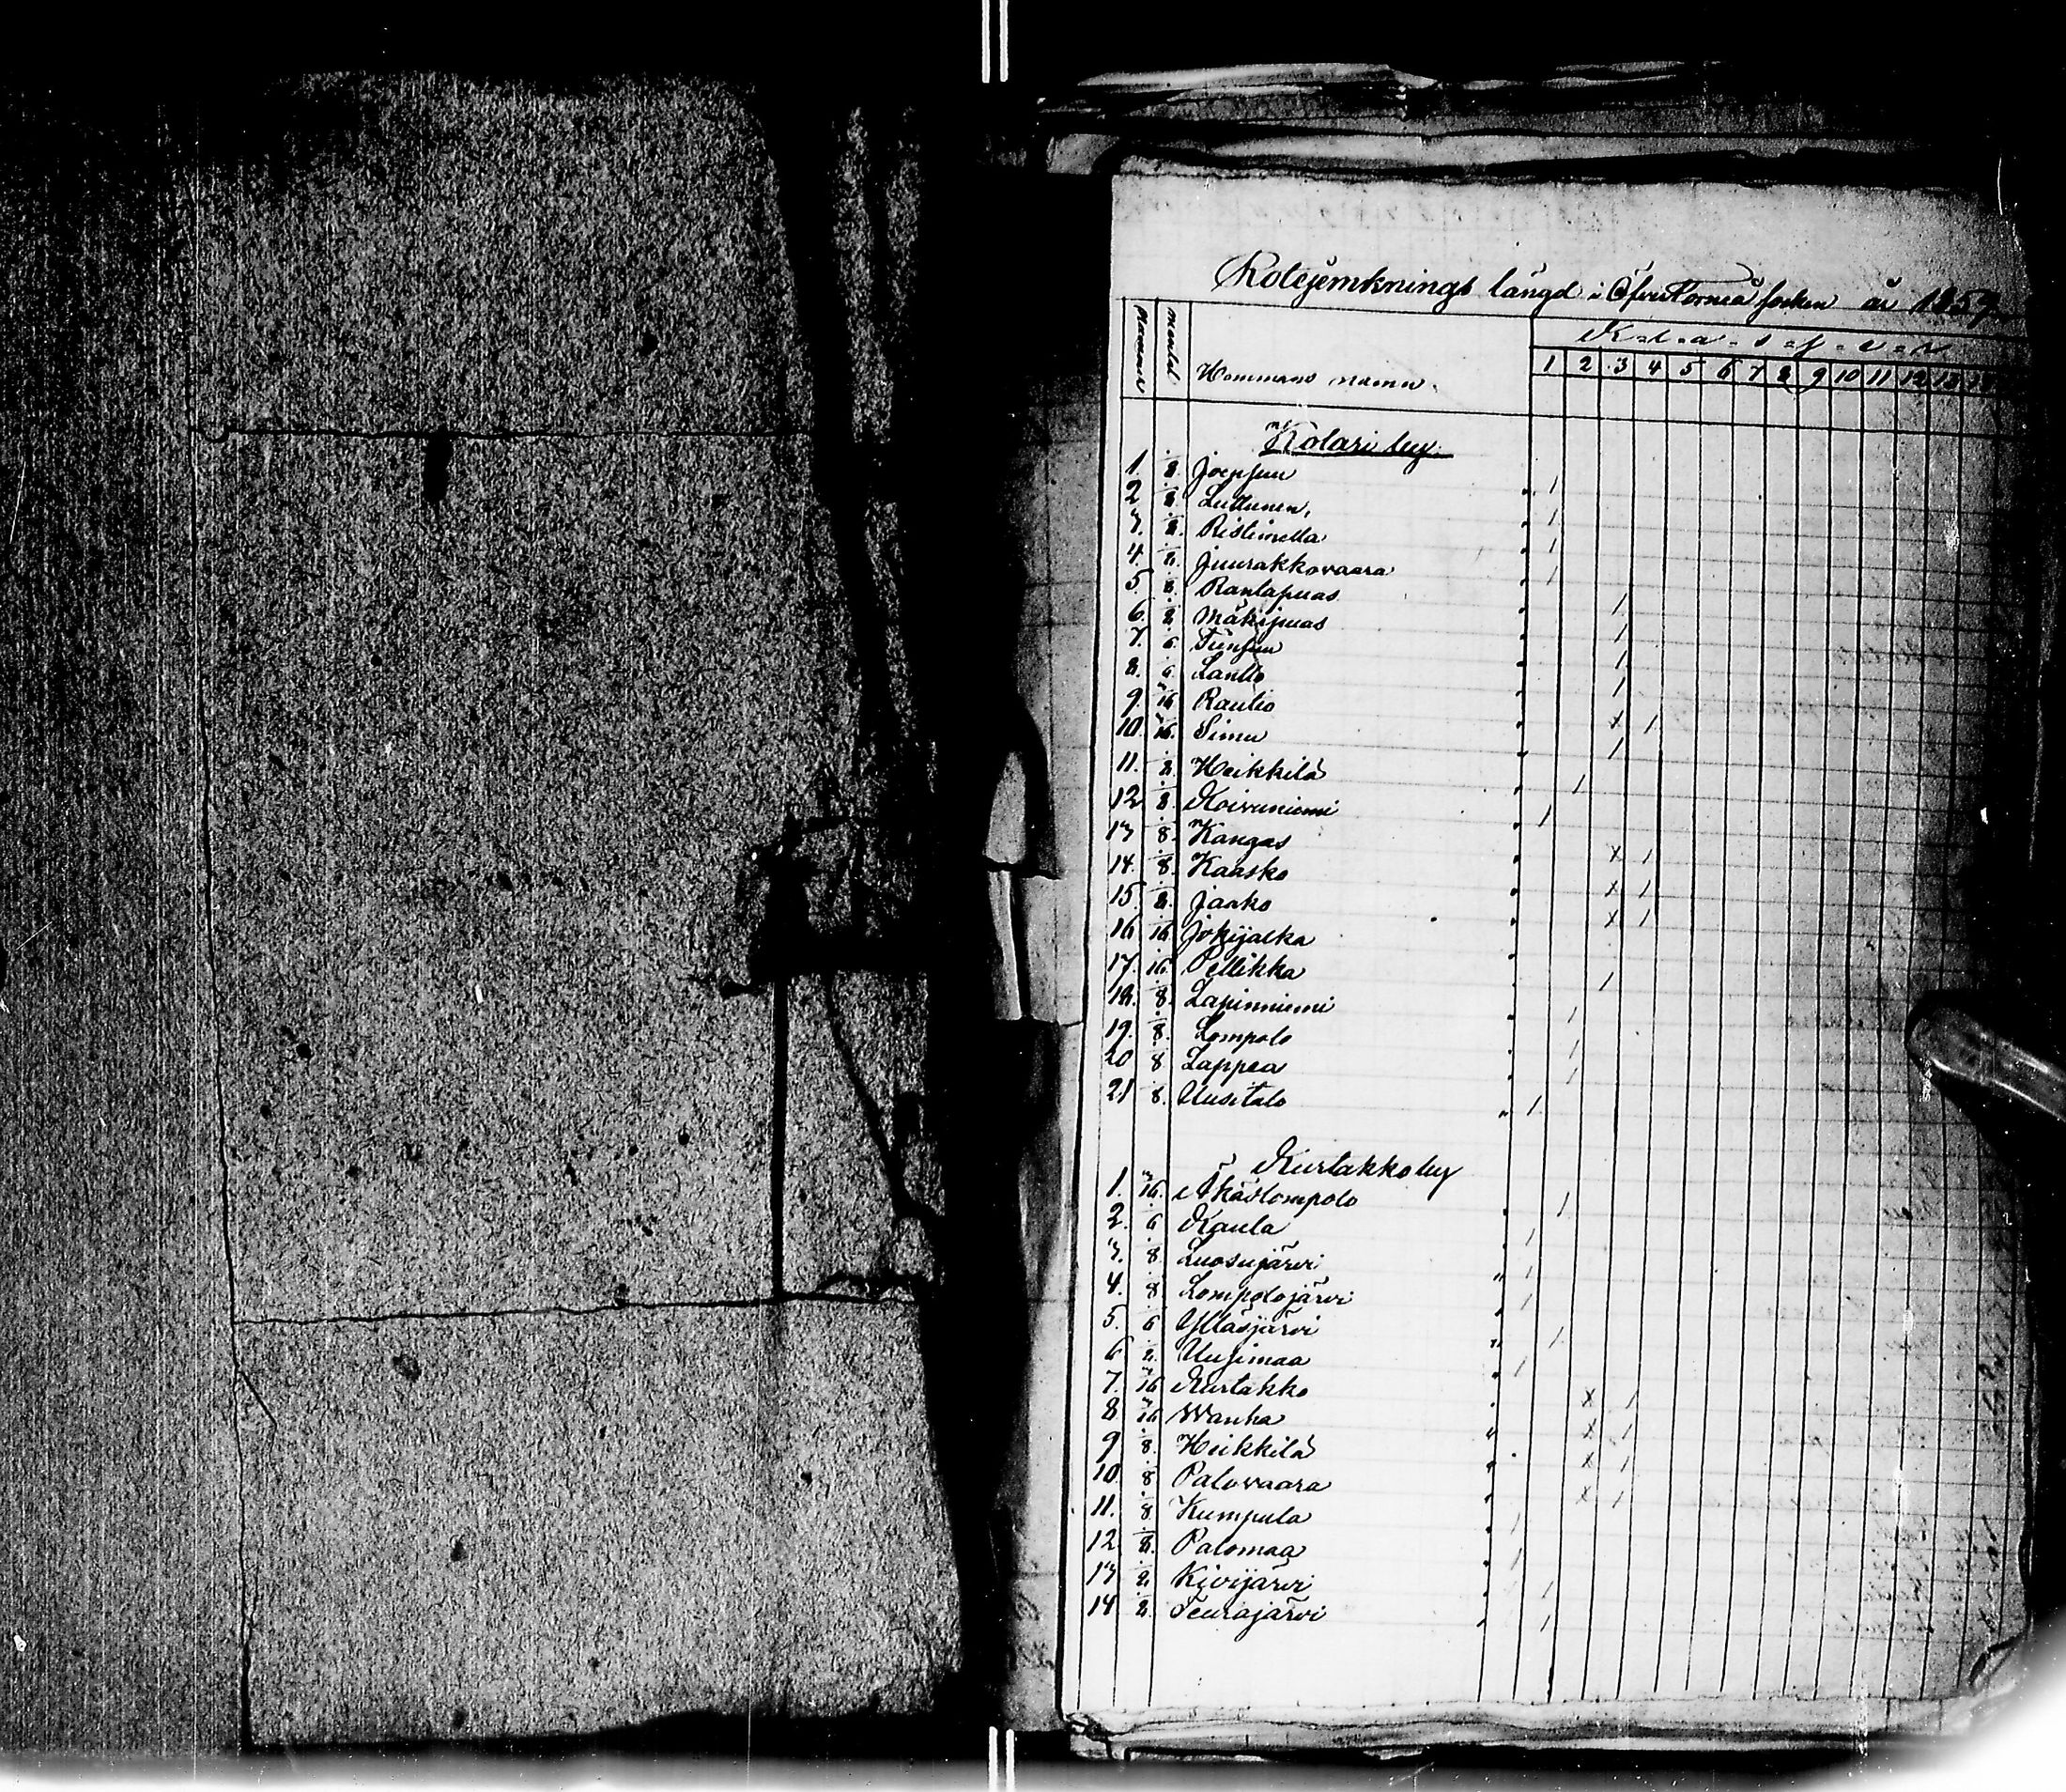 Rotejemknings längd i ÖfverTorneå socken år 1857
Nummer Mantal Hemmans namn. K=l=a=s=s=e=r
1 2 3 4 5 6 7 8 9 10 11 12 13
Kolari by.
1. 8. Joensuu " 1
2 8. Luttunen, " 1
3. 8. Ristimella 1
4. 8. Juurakkovaara 1
5 8. Rantapuas " 1
6. 8 Mäkipuas " 1
7. 6. Tuensuu " 1
8. 6. Lantto " 1
9. 16 Rautio " x 1
10. 16. Simu " 1
11. 8. Heikkilä " 1
12 8. Koivuniemi " 1
13 8. Kangas " x 1
14. 8. Kaasko " x 1
15. 8. Jaako " x 1
16 16 Jokijalka "
17. 16. Pellikka " 1
18. 8. Lapinniemi " 1
19. 8. Lompolo " 1
20 8 Lappea " 1
21 8. Uusitalo " 1
Kurtakko by
1. 16. Äkäslompolo " 1
2. 6 Kaula 1
3. 8 Luosujärvi " 1
4. 8. Lompolojärvi " 1
5. 6 Ylläsjärvi " 1
6 8. Uusimaa " 1
7. 16 Kurtakko " x 1
8 16 Wanha " x 1
9 8. Heikkilä " x 1
10. 8 Palovaara " x 1
11. 8 Kumpula 1
12. 8. Palomaa " 1
13 8. Kivijärvi " 1
14 8. Teurajärvi " 1